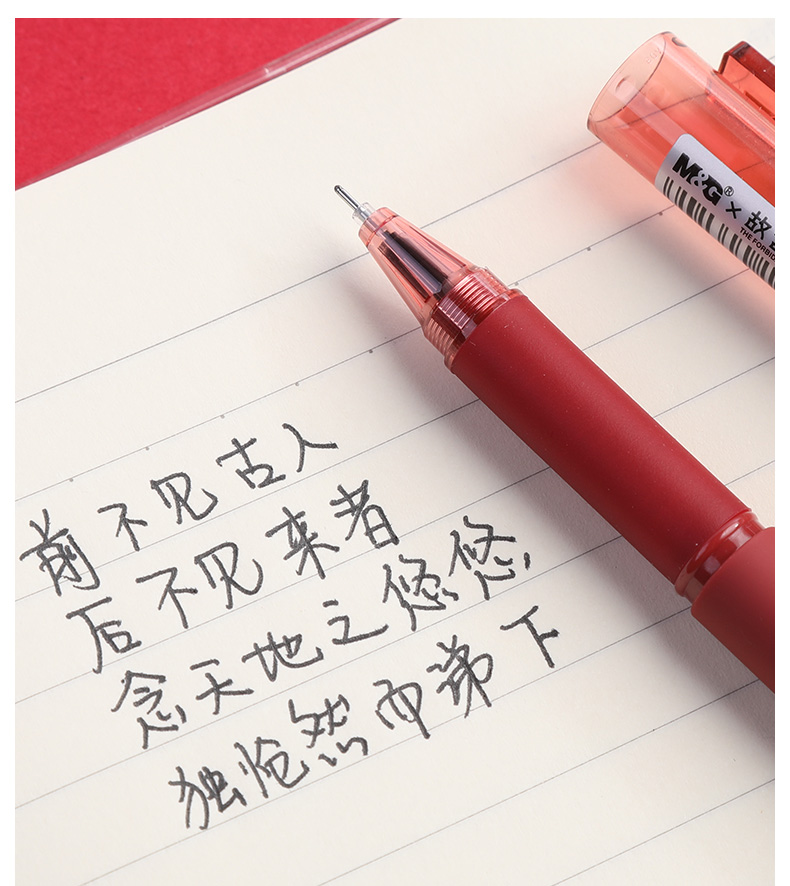 M&G® × 故
THE FORBID
前不见古人
后不见来者
念天地之悠悠
独怆然而涕下